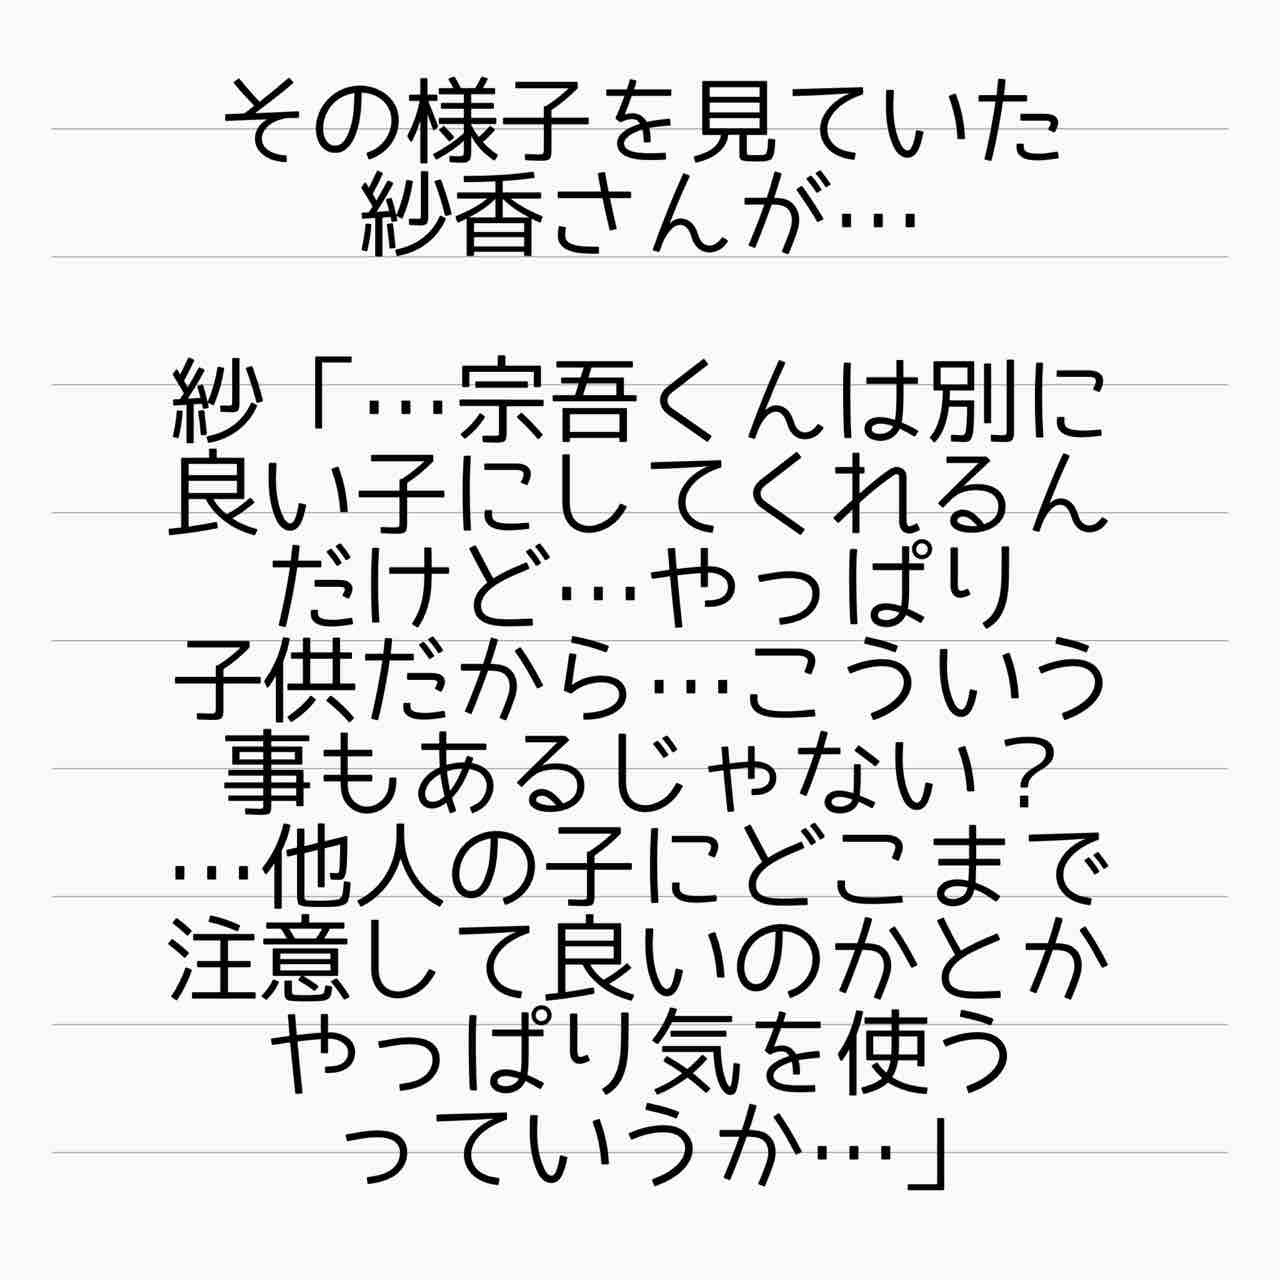 その様子を見ていた
紗香さんが…
紗「…宗吾くんは別に
良い子にしてくれるん
だけど…やっぱり
子供だから…こういう
事もあるじゃない？
…他人の子にどこまで
注意して良いのかとか
やっぱり気を使う
っていうか…」